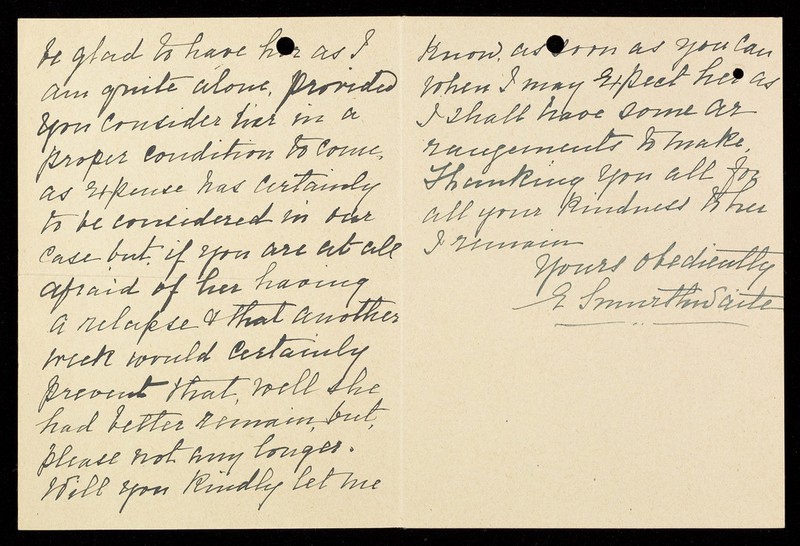 be glad to have her as I
am quite alone, provided
you consider her in a
proper condition to come,
as expense has certainly
to be considered in our
case but, if you are at all
afraid of her having
a relapse & that another
week would certainly
prevent that, well she
had better remain, but,
please not any longer.
Will you kindly let me
know, as soon as you can
when I may expect her as
I shall have some ar
rangements to make.
Thanking you all for
all your kindness to her
I remain
Yours obediently
E Smurthwaite